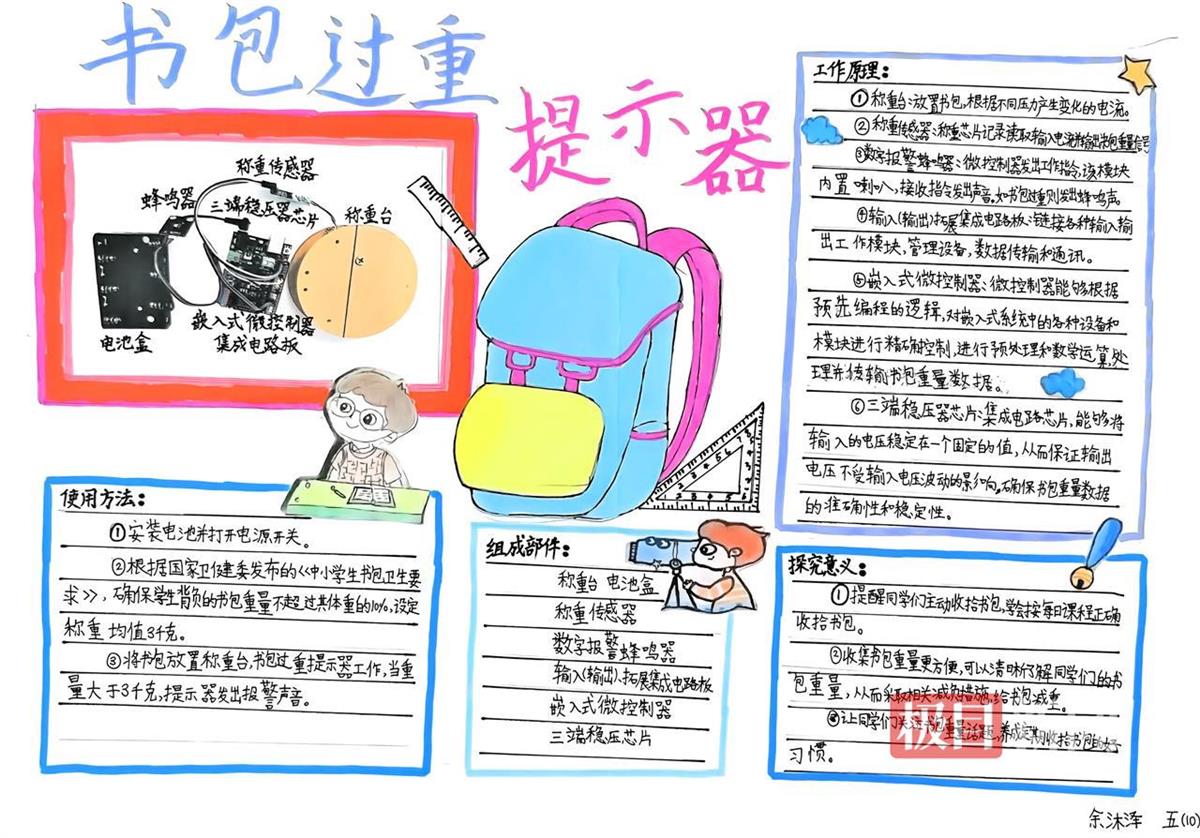 书包过重
提示器
称重传感器
蜂鸣器
三端稳压器芯片
称重台
嵌入式微控制器
集成电路板
电池盒
使用方法：
①安装电池并打开电源开关。
②根据国家卫健委发布的《中小学生书包卫生要
求》，确保学生背负的书包重量不超过其体重的10%，设定
称重均值3千克。
③将书包放置称重台，书包过重提示器工作，当重
量大于3千克，提示器发出报警声音。
组成部件：
称重台 电池盒
称重传感器
数字报警蜂鸣器
输入(输出)、拓展集成电路板
嵌入式微控制器
三端稳压芯片
工作原理：
①称重台：放置书包，根据不同压力产生变化的电流。
②称重传感器：称重芯片记录读取输入电流并输出书包重量信号
③数字报警蜂鸣器：微控制器发出工作指令，该模块
内置喇叭，接收指令发出声音。如书包过重则发出蜂鸣声。
④输入(输出)拓展集成电路板：链接各种输入输
出工作模块，管理设备，数据传输和通讯。
⑤嵌入式微控制器：微控制器能够根据
预先编程的逻辑，对嵌入式系统中的各种设备和
模块进行精确控制，进行预处理和数学运算，处
理并传输书包重量数据。
⑥三端稳压器芯片：集成电路芯片，能够将
输入的电压稳定在一个固定的值，从而保证输出
电压不受输入电压波动的影响。确保书包重量数据
的准确性和稳定性。
探究意义：
①提醒同学们主动收拾书包，学会按每日课程正确
收拾书包。
②收集书包重量更方便，可以清晰了解同学们的书
包重量，从而采取相关减负措施，给书包减重。
③让同学们关注书包重量话题，养成定期收拾书包的好
习惯。
极目
余沐泽 五(10)